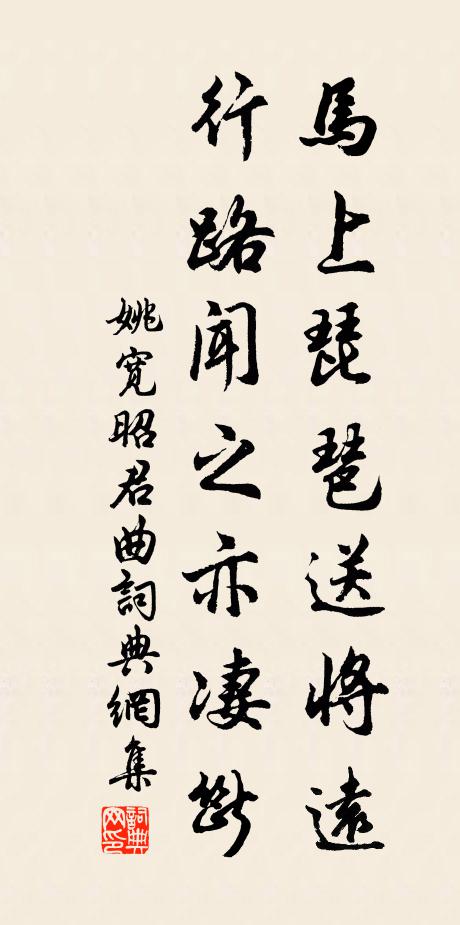 馬上琵琶送將遠
行路聞之亦凄斷
姚寬昭君曲詞典網集
詞典网印